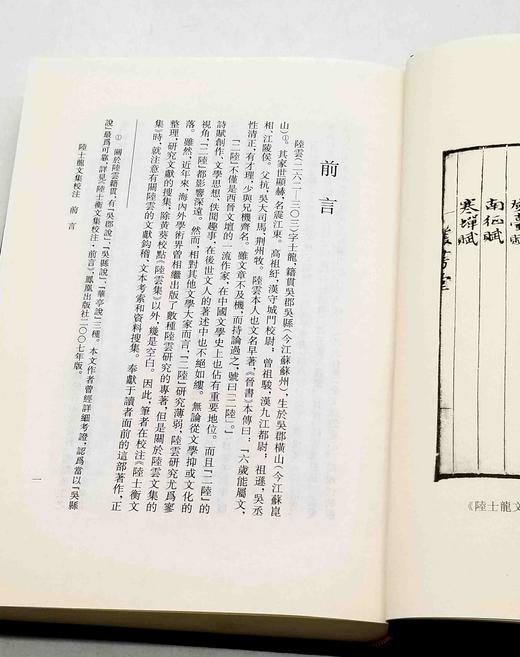 南征賦
寒蟬賦
《陸士龍文
前言
陸雲(二六二—三〇三)字士龍,籍貫吳郡吳縣(今江蘇蘇州),生於吳郡橫山(今江蘇崑
山)①。其家世顯赫,名震江東。高祖紆,漢守城門校尉;曾祖駿,漢九江都尉;祖遜,吳丞
相、江陵侯。父抗,吳大司馬、荊州牧。陸雲本人也文名早著,《晉書》本傳曰:「六歲能屬文,
性清正,有才理。少與兄機齊名,雖文章不及機,而持論過之,號曰『二陸』。」
「二陸」不僅是西晉文壇的一流作家,在中國文學史上也佔有重要地位。而且「二陸」的
詩賦創作、文學思想、佚聞趣事,在後世文人的著述中也不絕如縷。無論從文學抑或文化的
視角,「二陸」都影響深遠。然而,相對其他文學大家而言,「二陸」研究薄弱,陸雲研究尤爲寥
落。雖然,近年來,海內外學術界曾相繼出版了數種陸雲研究的專著,但是關於陸雲文集的
整理、研究文獻的搜集,除黃葵校點《陸雲集》以外,幾是空白。因此,筆者在校注《陸士衡文
集》時,就注意有關陸雲的文獻鈎稽、文本考索和資料搜集。奉獻于讀者面前的這部著作,正
① 關於陸雲籍貫,有「吳郡說」、「吳縣說」、「華亭說」三種。本文作者曾經詳細考證,認爲當以「吳縣
說」最爲可靠,詳見《陸士衡文集校注·前言》,鳳凰出版社二〇〇七年版。
陸士龍文集校注 前言
一